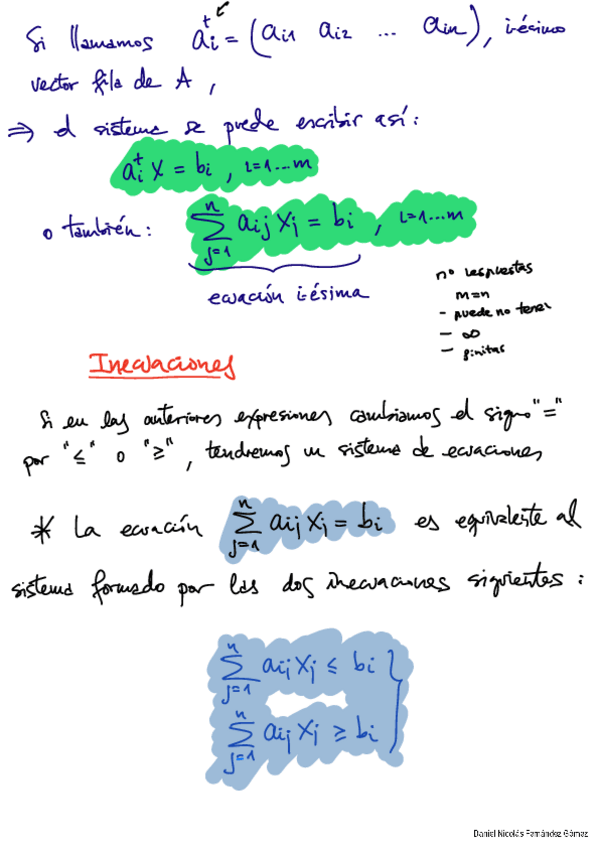 Si llamamos aᵢᵗ = (aᵢ₁ aᵢ₂ ... aᵢₙ), i-ésimo
vector fila de A,
⇒ el sistema se puede escribir así:
aᵢᵗ x = bᵢ, i=1...m
o también: ∑ⱼ₌₁ⁿ aᵢⱼ xⱼ = bᵢ, i=1...m
ecuación i-ésima
nº respuestas
m=n
- puede no tener
- ∞
- finitas
Inecuaciones
Si en las anteriores expresiones cambiamos el signo "="
por "≤" o "≥", tendremos un sistema de ecuaciones
* La ecuación ∑ⱼ₌₁ⁿ aᵢⱼ xⱼ = bᵢ es equivalente al
sistema formado por las dos inecuaciones siguientes:
∑ⱼ₌₁ⁿ aᵢⱼ xⱼ ≤ bᵢ
∑ⱼ₌₁ⁿ aᵢⱼ xⱼ ≥ bᵢ
Daniel Nicolás Fernández Gómez